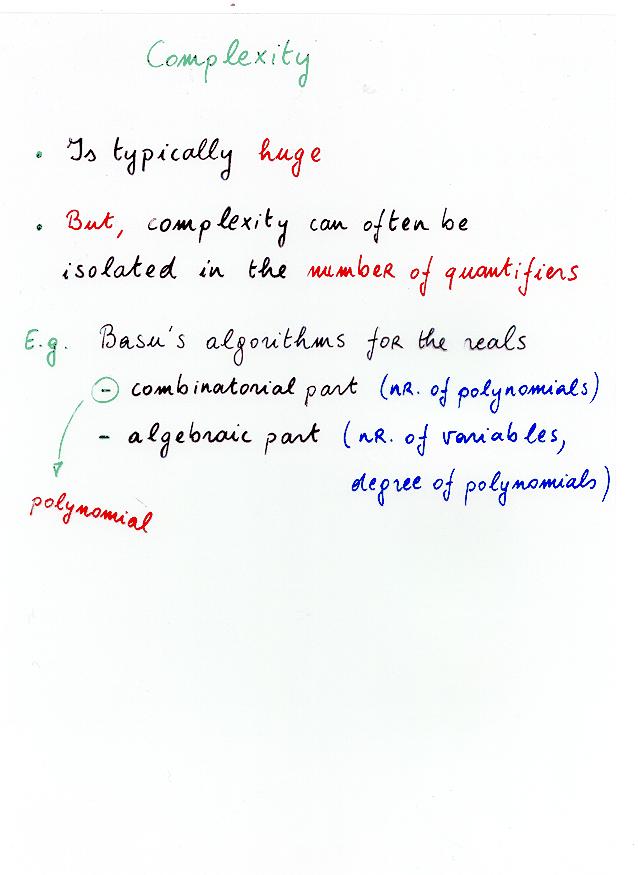 Complexity
• Is typically huge
• But, complexity can often be
isolated in the number of quantifiers
E.g. Basu's algorithms for the reals
- combinatorial part (nR. of polynomials)
- algebraic part (nR. of variables,
degree of polynomials)
polynomial